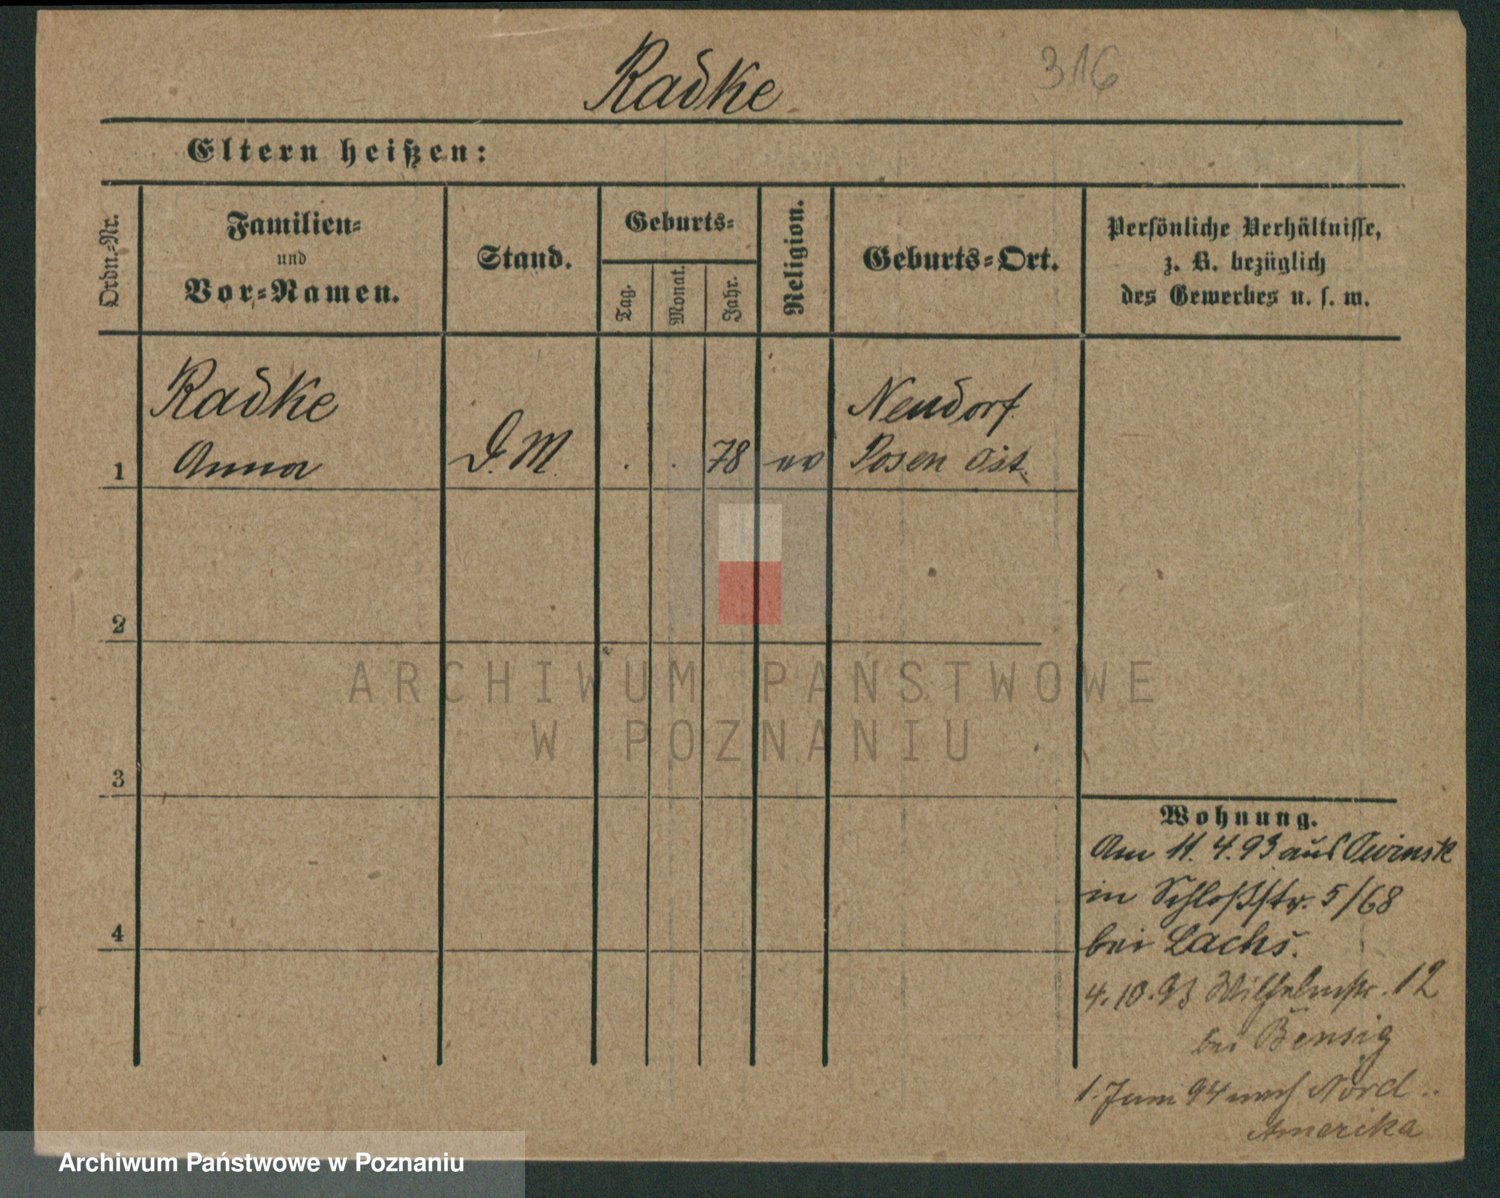 Radke
316
Eltern heißen:
Ordn.-Nr.
Familien-
und
Vor-Namen.
Stand.
Geburts-
Tag.
Monat.
Jahr.
Religion.
Geburts-Ort.
Persönliche Verhältnisse,
z. B. bezüglich
des Gewerbes u. s. w.
1
Radke
Anna
D. M.
78
Neudorf
Posen Ost.
2
3
4
ARCHIWUM PAŃSTWOWE
W POZNANIU
Wohnung.
Am 11. 4. 93 aus Owinsk
in Schloßstr. 5/68
bei Lachs.
4. 10. 93 Wilhelmstr. 12
bei Bensig
1. Juni 94 nach Nord
Amerika
Archiwum Państwowe w Poznaniu